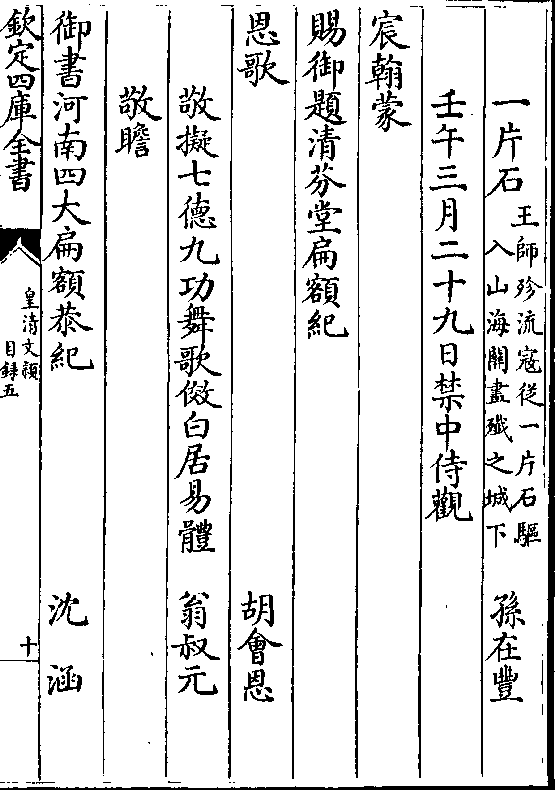 一片石王師殄流寇從一片石驅
入山海關盡殱之城下　孫在豐
壬午三月二十九日禁中侍觀
宸翰蒙
賜御題清芬堂扁額紀
恩歌　胡會恩
敬擬七德九功舞歌傚白居易體　翁叔元
敬瞻
御書河南四大扁額恭紀　沈涵
欽定四庫全書
皇清文穎
目録五
十